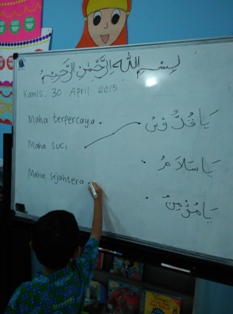 بِسْمِ اللهِ الرَّحْمٰنِ الرَّحِيْمِ
Kamis, 30 April 2015
Maha terpercaya
يَا قُدُّوْسُ
Maha suci
يَا سَلَامُ
Maha sejahtera
يَا مُؤْمِنُ